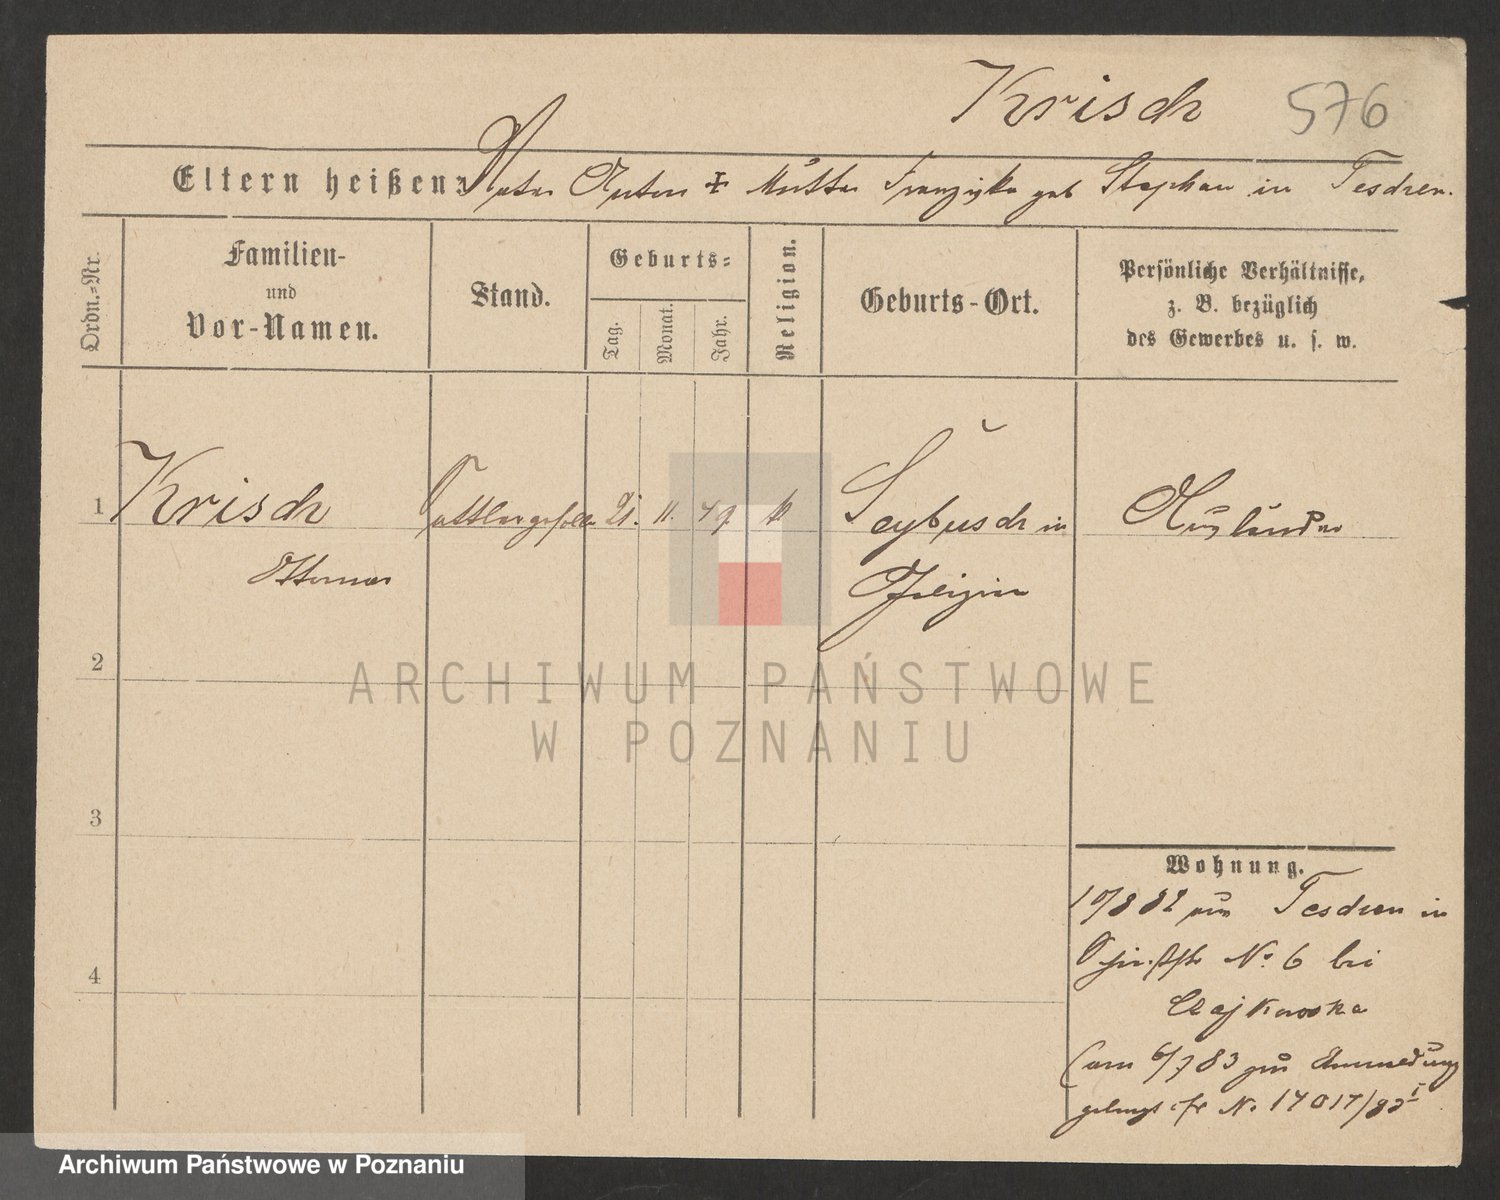 Krisch 576
Eltern heißen: Vater Anton ✝ Mutter Franziska geb Stephan in Teschen.
Ordn.-Nr.
Familien-
und
Vor-Namen.
Stand.
Geburts-
Tag.
Monat.
Jahr.
Religion.
Geburts-Ort.
Persönliche Verhältnisse,
z. B. bezüglich
des Gewerbes u. s. w.
1 Krisch Sattlergeselle 21. 11. 49. k Seybusch in Ausländer
Ottomar Galizien
2
3
4
Wohnung.
10/8 82 aus Teschen in
No. 6 bei
Czajkowska
(am 6/7 83 zur Anmeldung
gelangt cfr No. 17017/83 I
ARCHIWUM PAŃSTWOWE
W POZNANIU
Archiwum Państwowe w Poznaniu